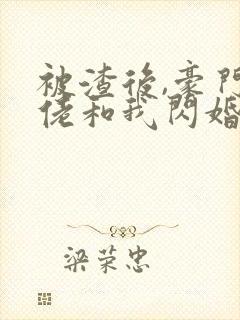 被渣後,豪門
佬和我閃婚
梁荣忠